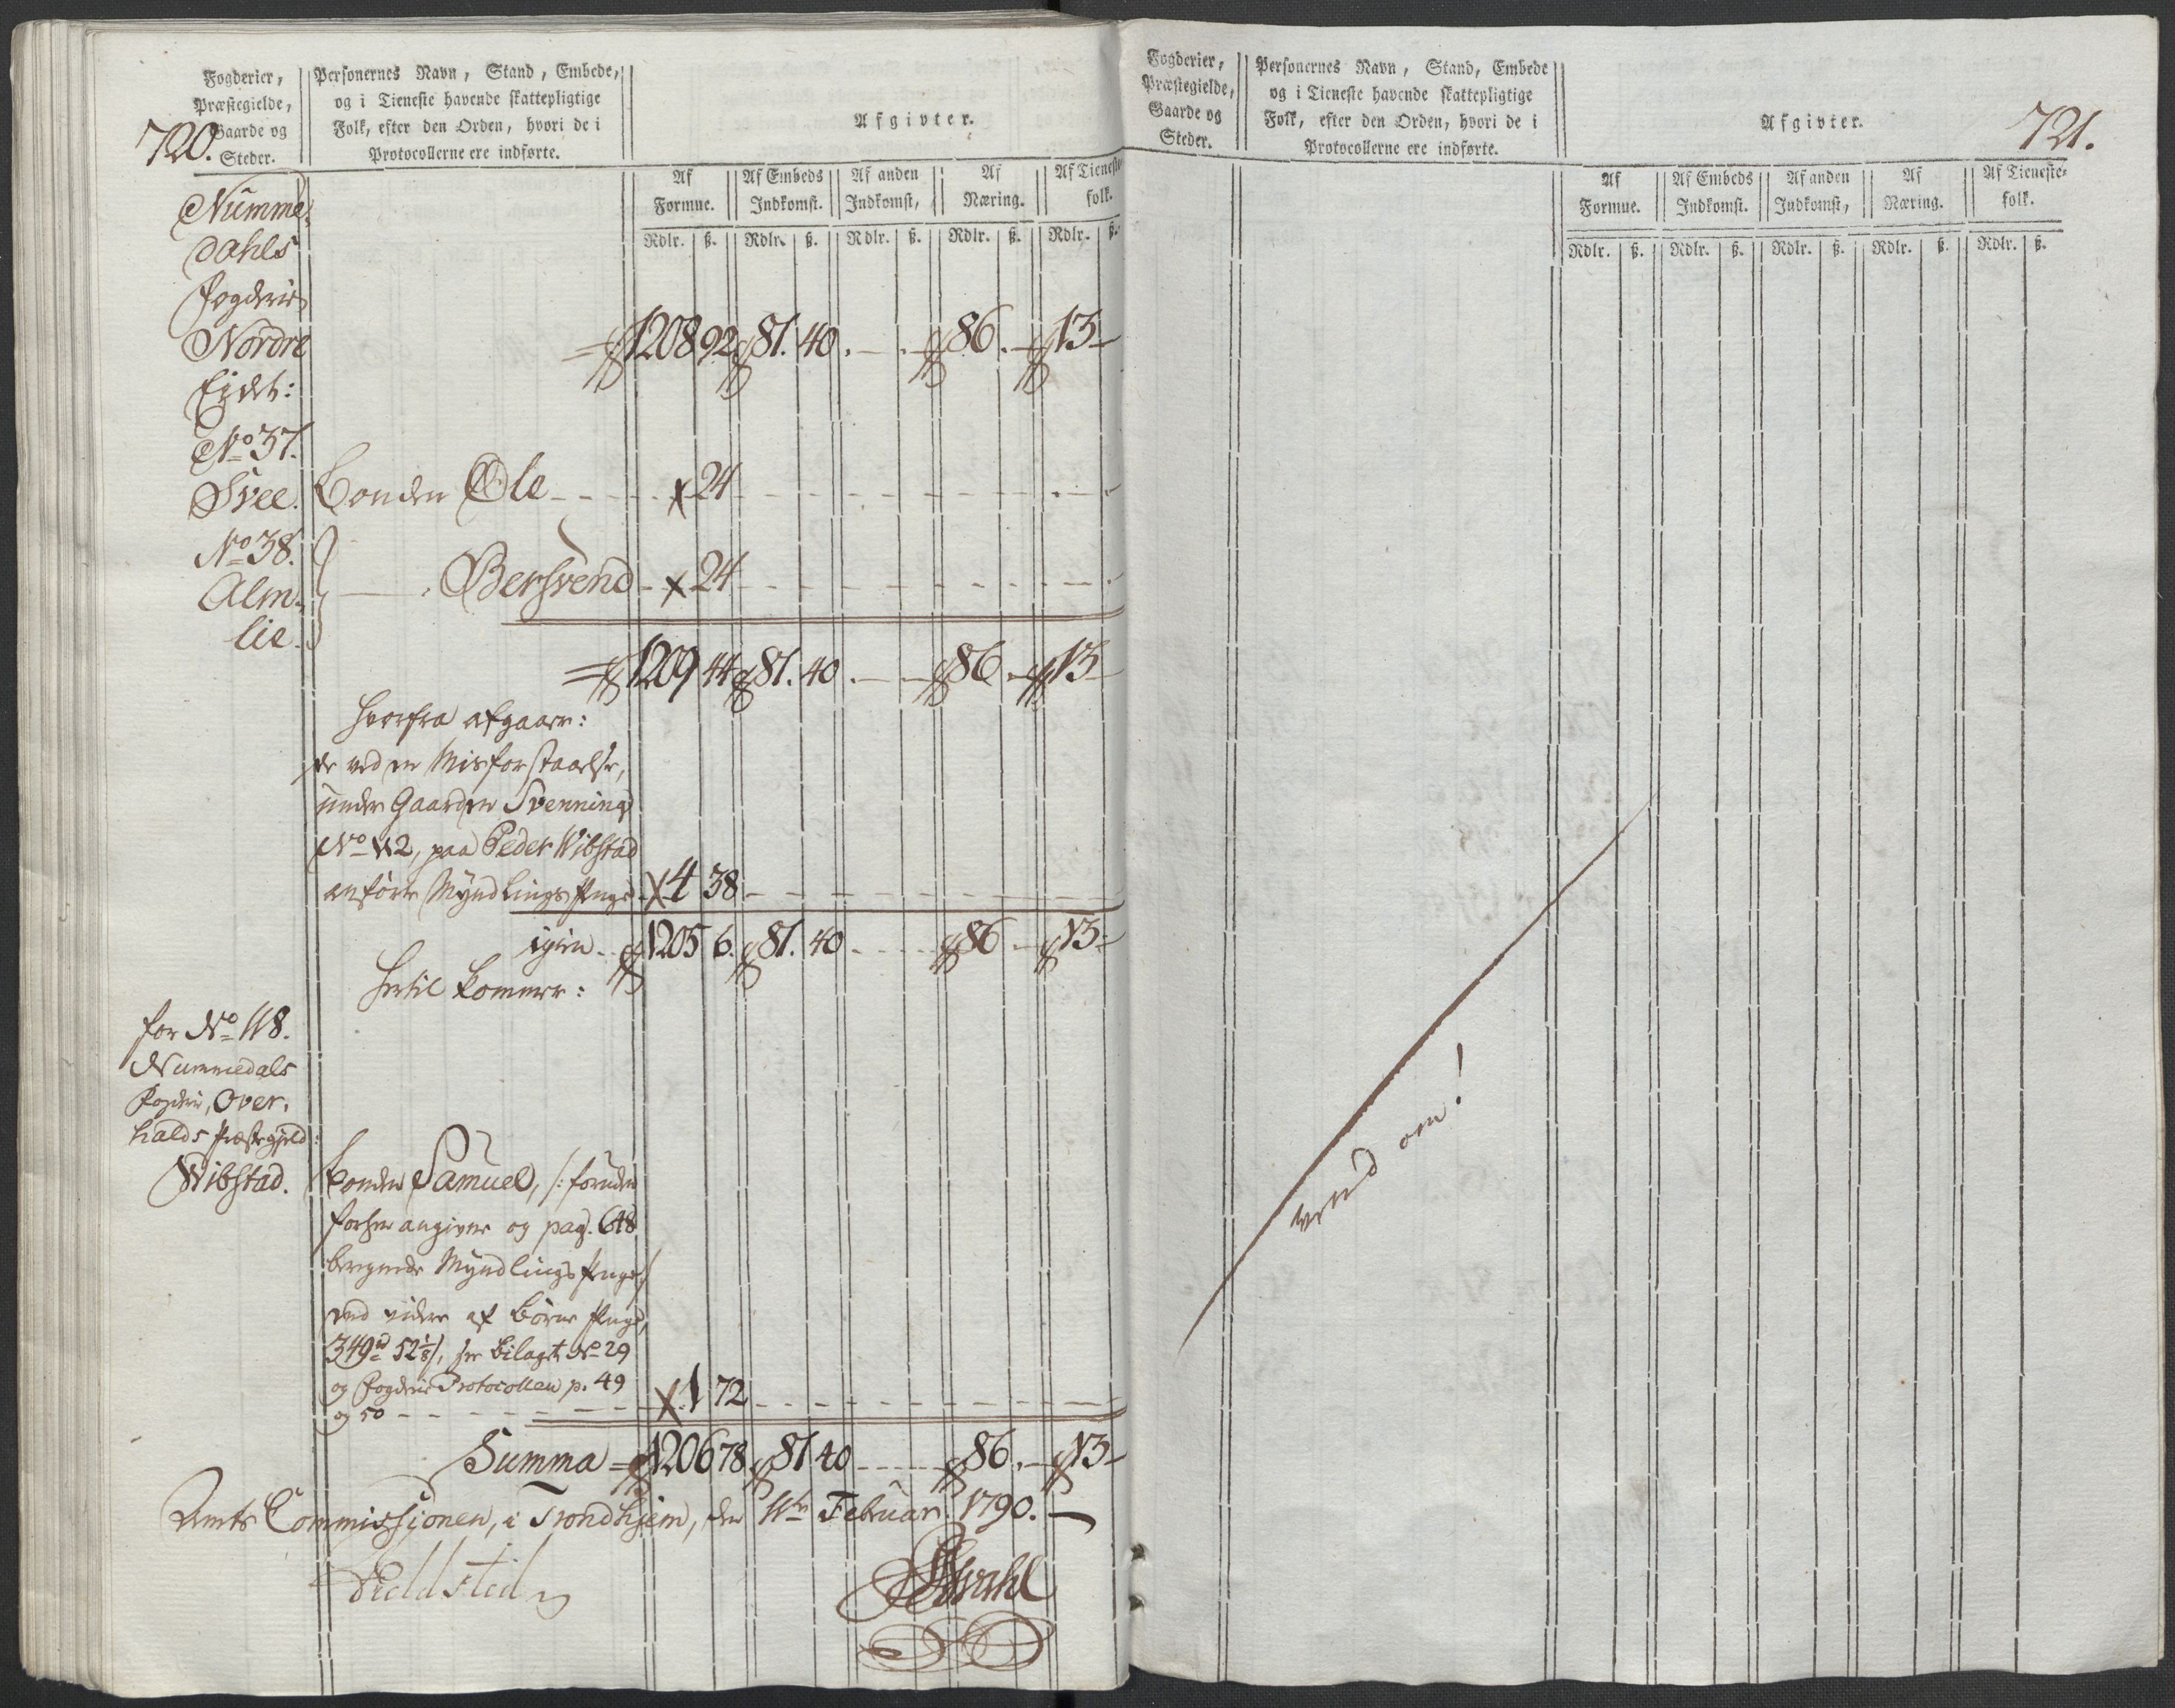 Fogderier,
Præstegielde,
Gaarde og
Steder.
720.
Personernes Navn, Stand, Embede,
og i Tieneste havende skattepligtige
Folk, efter den Orden, hvori de i
Protocollerne ere indførte.
Afgivter.
Af Formue. Af Embeds Indkomst. Af anden Indkomst, Af Næring. Af Tieneste folk.
Rdlr. ß. Rdlr. ß. Rdlr. ß. Rdlr. ß. Rdlr. ß.
Numme-
dahls
Fogderie
Nordre 1208 92 81. 40. 86. 13
Eidet:
No 37.
Svee. Bonden Ole x 24
No 38.
Alm- Bersvend x 24
lie.
1209 44 81. 40. 86. 13
Hvorfra afgaaer:
de ved en Misforstaaelse,
under Gaarden Svenning
No 112, paa Peder Wibstad
anførte Myndlings Penge x 4 38
igien 1205 6. 81. 40 86 13
Hertil kommer:
for No 118.
Nummedals
Fogderie, Over-
halds Præstegjeld:
Wibstad. Bonden Samuel, /: foruden
forhen angivne og pag. 648
beregnede Myndlings Penge /
end videre af Børne Penge,
349 rd 52 1/8 ß, see Bilaget No 29
og Fogderie Protocollen p. 49
og 50 x 1 72
Summa 1206 78 81 40 86. 13
Amts Commissionen, i Trondhjem, den 11te Februar 1790.
Fieldsted
721.
Fogderier,
Præstegielde,
Gaarde og
Steder.
Personernes Navn, Stand, Embede
og i Tieneste havende skattepligtige
Folk, efter den Orden, hvori de i
Protocollerne ere indførte.
Afgivter.
Af Formue. Af Embeds Indkomst. Af anden Indkomst, Af Næring. Af Tieneste- folk.
Rdlr. ß. Rdlr. ß. Rdlr. ß. Rdlr. ß. Rdlr. ß.
vend om!